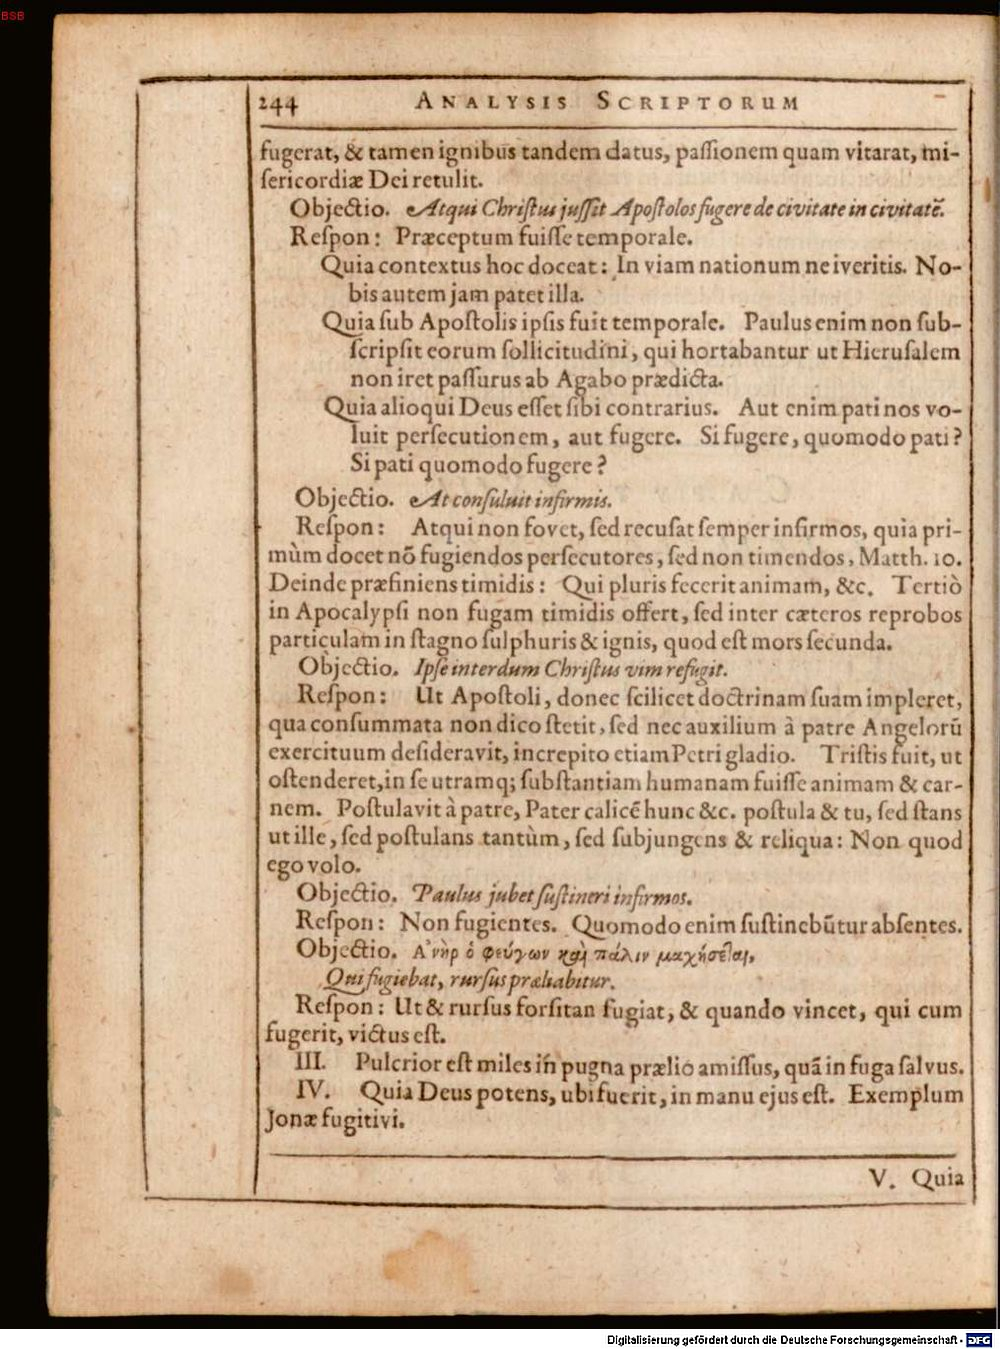 BSB
244 ANALYSIS SCRIPTORUM
fugerat, & tamen ignibus tandem datus, paſſionem quam vitarat, mi-
ſericordiæ Dei retulit.
Objectio. Atqui Chriſtus juſſit Apoſtolos fugere de civitate in civitatē.
Reſpon: Præceptum fuiſſe temporale.
Quia contextus hoc doceat: In viam nationum ne iveritis. No-
bis autem jam patet illa.
Quia ſub Apoſtolis ipſis fuit temporale. Paulus enim non ſub-
ſcripſit eorum ſollicitudini, qui hortabantur ut Hieruſalem
non iret paſſurus ab Agabo prædicta.
Quia alioqui Deus eſſet ſibi contrarius. Aut enim pati nos vo-
luit perſecutionem, aut fugere. Si fugere, quomodo pati?
Si pati quomodo fugere?
Objectio. At conſuluit infirmis.
Reſpon: Atqui non fovet, ſed recuſat ſemper infirmos, quia pri-
mùm docet nō fugiendos perſecutores, ſed non timendos, Matth. 10.
Deinde præfiniens timidis: Qui pluris fecerit animam, &c. Tertiò
in Apocalypſi non fugam timidis offert, ſed inter cæteros reprobos
particulam in ſtagno ſulphuris & ignis, quod eſt mors ſecunda.
Objectio. Ipſe interdum Chriſtus vim refugit.
Reſpon: Ut Apoſtoli, donec ſcilicet doctrinam ſuam impleret,
qua conſummata non dico ſtetit, ſed nec auxilium à patre Angelorū
exercituum deſideravit, increpito etiam Petri gladio. Triſtis fuit, ut
oſtenderet, in ſe utramq; ſubſtantiam humanam fuiſſe animam & car-
nem. Poſtulavit à patre, Pater calicē hunc &c. poſtula & tu, ſed ſtans
ut ille, ſed poſtulans tantùm, ſed ſubjungens & reliqua: Non quod
ego volo.
Objectio. Paulus jubet ſuſtineri infirmos.
Reſpon: Non fugientes. Quomodo enim ſuſtinebūtur abſentes.
Objectio. Ἀνὴρ ὁ φεύγων καὶ πάλιν μαχήσεται,
Qui fugiebat, rurſus præliabitur.
Reſpon: Ut & rurſus forſitan fugiat, & quando vincet, qui cum
fugerit, victus eſt.
III. Pulcrior eſt miles in pugna prælio amiſſus, quā in fuga ſalvus.
IV. Quia Deus potens, ubi fuerit, in manu ejus eſt. Exemplum
Jonæ fugitivi.
V. Quia
Digitalisierung gefördert durch die Deutsche Forschungsgemeinschaft - DFG